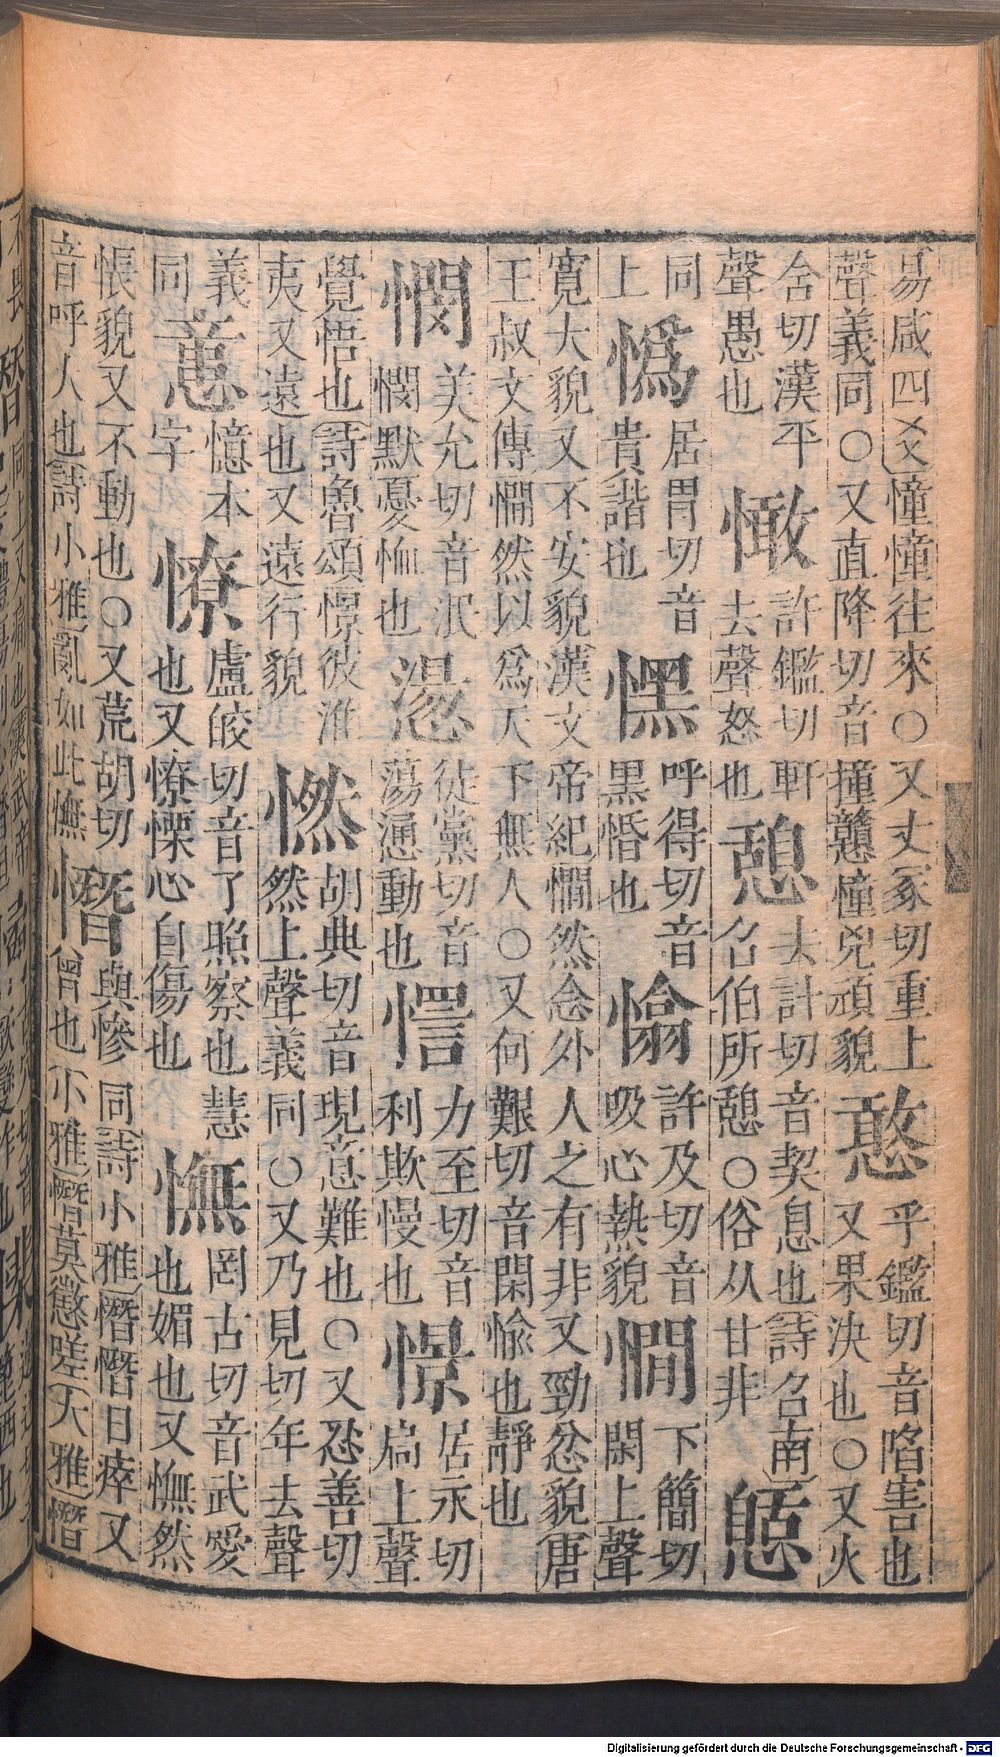 易咸四爻憧憧往來○又丈冢切重上
聲義同○又直降切音撞戇憧兇頑貌
憨
乎鑑切音陷害也
又果決也○又火
含切漢平
聲愚也
許鑑切軒
去聲怒也
憩
去計切音契息也詩召南
召伯所憩○俗从甘非
同
上
居胃切音
貴諧也
呼得切音
黒惛也
許及切音
吸心熱貌
憪
下簡切
閑上聲
寬大貌又不安貌漢文帝紀憪然念外人之有非又勁忿貌唐
王叔文傳憪然以爲天下無人○又何艱切音閑愉也靜也
憫
美允切音泯
憫默憂恤也
徒黨切音
蕩憅動也
力至切音
利欺慢也
憬
居永切
扃上聲
覺悟也詩魯頌憬彼淮
夷又遠也又遠行貌
胡典切音現意難也○又忍善切
然上聲義同○又乃見切年去聲
義
同
憶本
字
憭
盧皎切音了照察也慧
也又憭慄心自傷也
憮
罔古切音武愛
也媚也又憮然
悵貌又不動也○又荒胡切
音呼人也詩小雅亂如此憮
憯
與慘同詩小雅憯憯日瘁又
曾也小雅憯莫懲嗟大雅憯
Digitalisierung gefördert durch die Deutsche Forschungsgemeinschaft - DFG